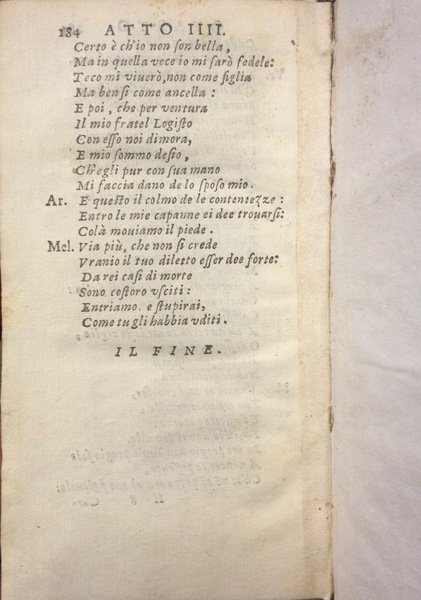 184 ATTO IIII.
Certo è ch'io non son bella,
Ma in quella vece io mi sarò fedele:
Teco mi viuerò, non come figlia
Ma bensì come ancella:
E poi, che per ventura
Il mio fratel Logisto
Con esso noi dimora,
E mio sommo desio,
Ch'egli pur con sua mano
Mi faccia dano de lo sposo mio.
Ar. E questo il colmo de le contentezze:
Entro le mie capanne ei dee trouarsi:
Colà mouiamo il piede.
Mel. Via più, che non si crede
Vranio il tuo diletto esser dee forte:
Da rei casi di morte
Sono costoro vsciti:
Entriamo e stupirai,
Come tu gli habbia vditi.
IL FINE.